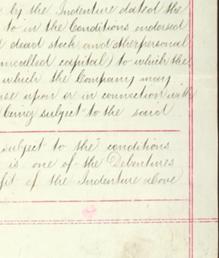 by the Indenture dated the
to in the Conditions endorsed
dead stock and other personal
uncalled capital) to which the
which the Company may
use upon or in connection with
being subject to the said
subject to the conditions
is one of the Debentures
fit of the Indenture above